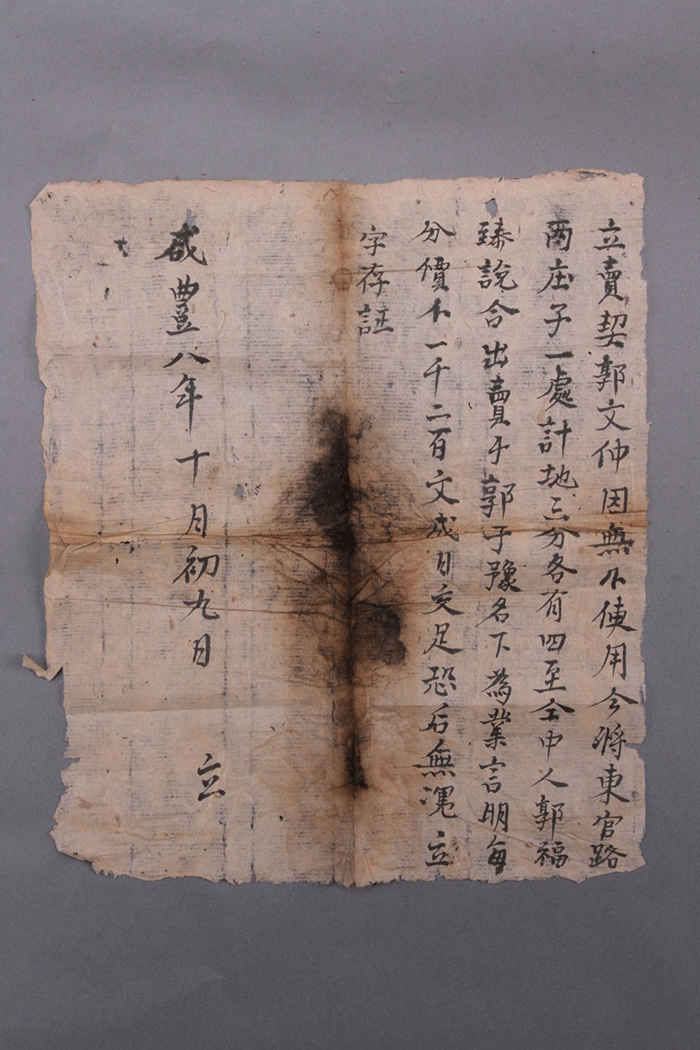 立賣契郭文仲因無个使用今將東官路
两庄子一處計地三分各有四至仝中人郭福
臻說合出賣于郭子豫名下為業言明每
分價个一千二百文成日交足恐后無凴立
字存証
咸豐八年十月初九日 立